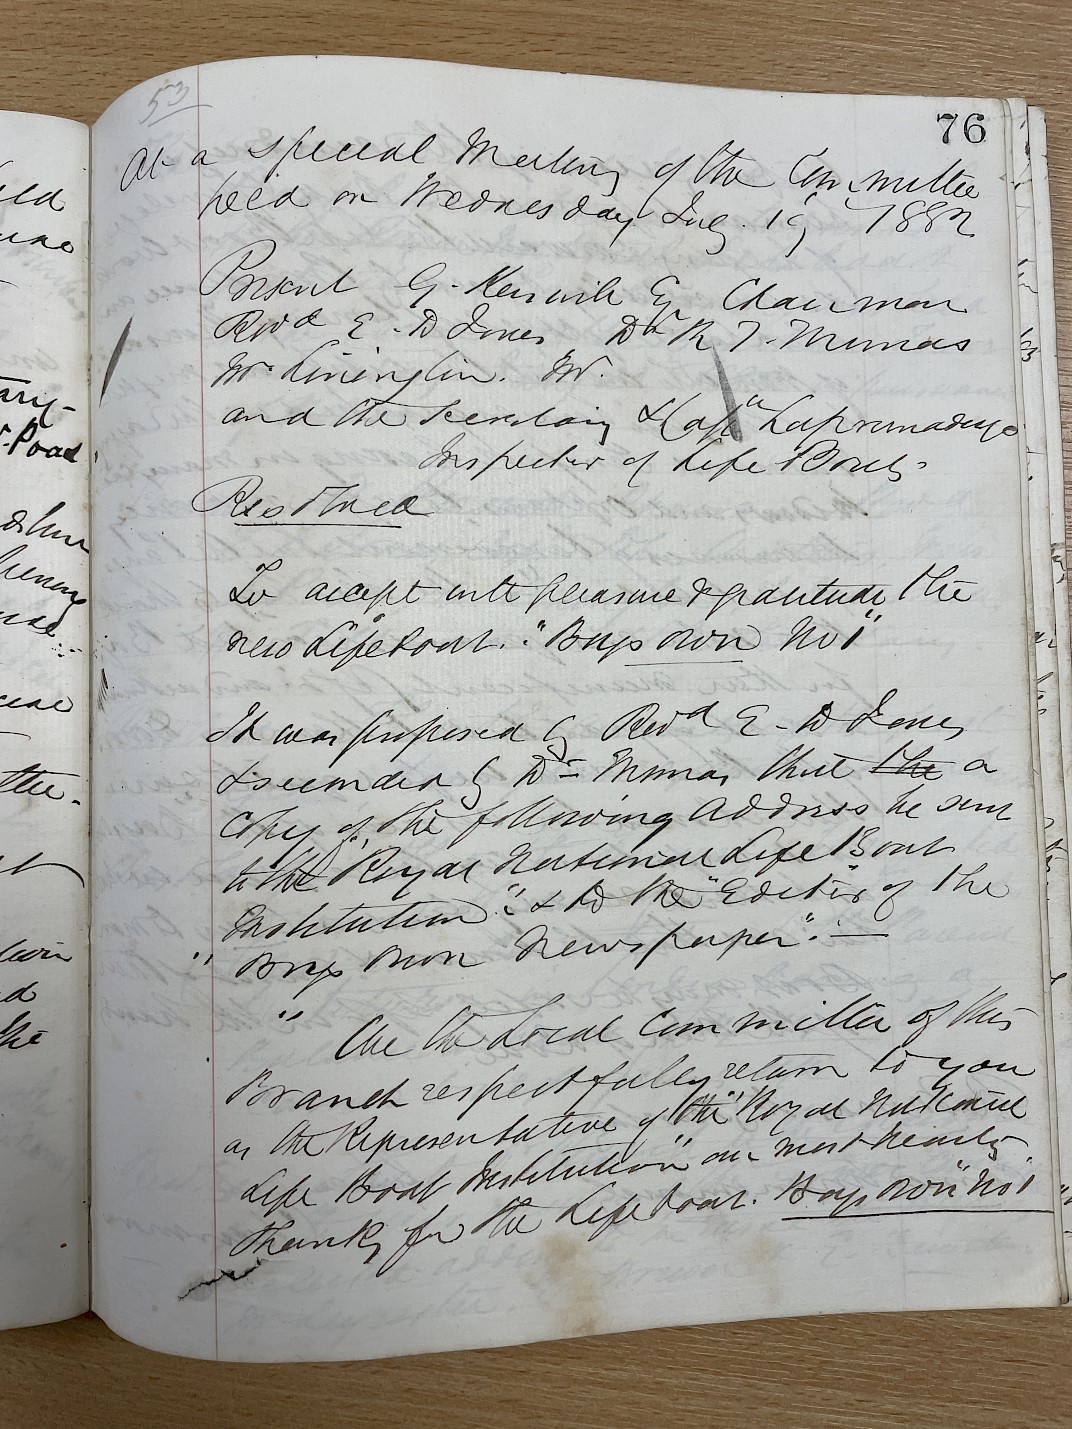 53
76
At a Special Meeting of the Committee
held on Wednesday July 19 1882
Present G. Keswick Esq Chairman
Revd E. D Jones Dr R T. Thomas
Mr Livingston. Mr.
and the Secretary & Captn
Inspector of Life Boats
Resolved
To accept with pleasure & gratitude the
new Lifeboat. "Boys own No 1"
It was proposed by Revd E. D Jones
& seconded by Dr Thomas that the a
Copy of the following Address be sent
to the "Royal National Life Boat
Institution" & to the "Editor of the
Boys Own Newspaper".
" We the Local Committee of this
Branch respectfully return to you
as the Representative of "the Royal National
Life Boat Institution" our most hearty
thanks for the Lifeboat. Boys Own "No 1